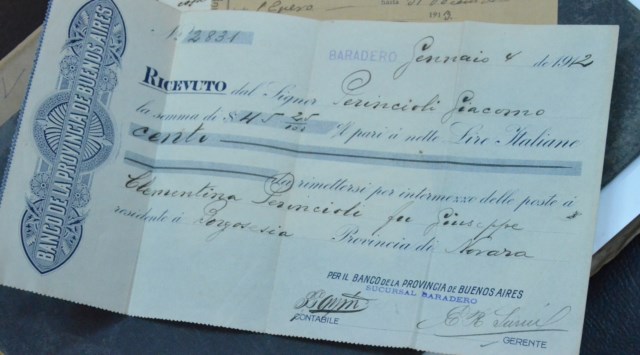 1912
BANCO DE LA PROVINCIA DE BUENOS AIRES
No. 2831
BARADERO Gennaio 4 de 1912
RICEVUTO dal Signor Perincioli Giacomo
la somma di $ 45 25/100 A pari à nette Lire Italiane
cento
da rimettersi per intermezzo delle poste á
Clementina Perincioli fu Giuseppe
residente á Borgosesia Provincia di Novara
PER IL BANCO DE LA PROVINCIA DE BUENOS AIRES
SUCURSAL BARADERO
CONTABILE
GERENTE